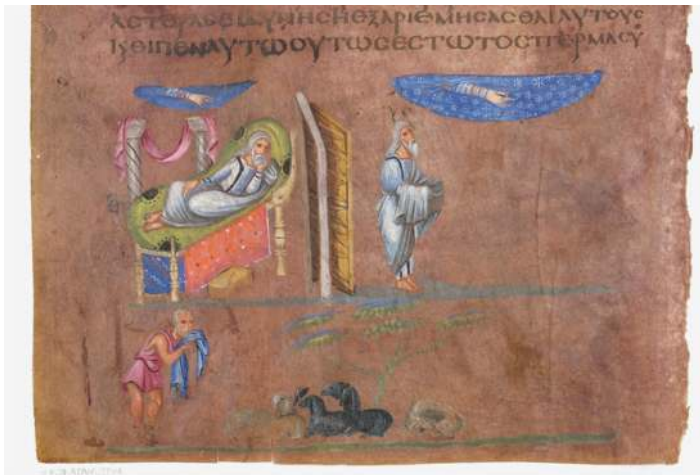 ΑϹΤΕΡΑϹΕΙΔΥΝΗϹΗΕΞΑΡΙΘΜΗϹΑϹΘΑΙΑΥΤΟΥϹ
ΕΙΠΕΝΑΥΤΩΟΥΤΩϹΕϹΤΩΤΟϹΠΕΡΜΑϹΥ